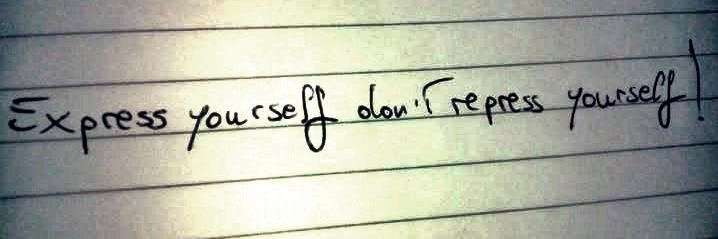 Express yourself don't repress yourself!